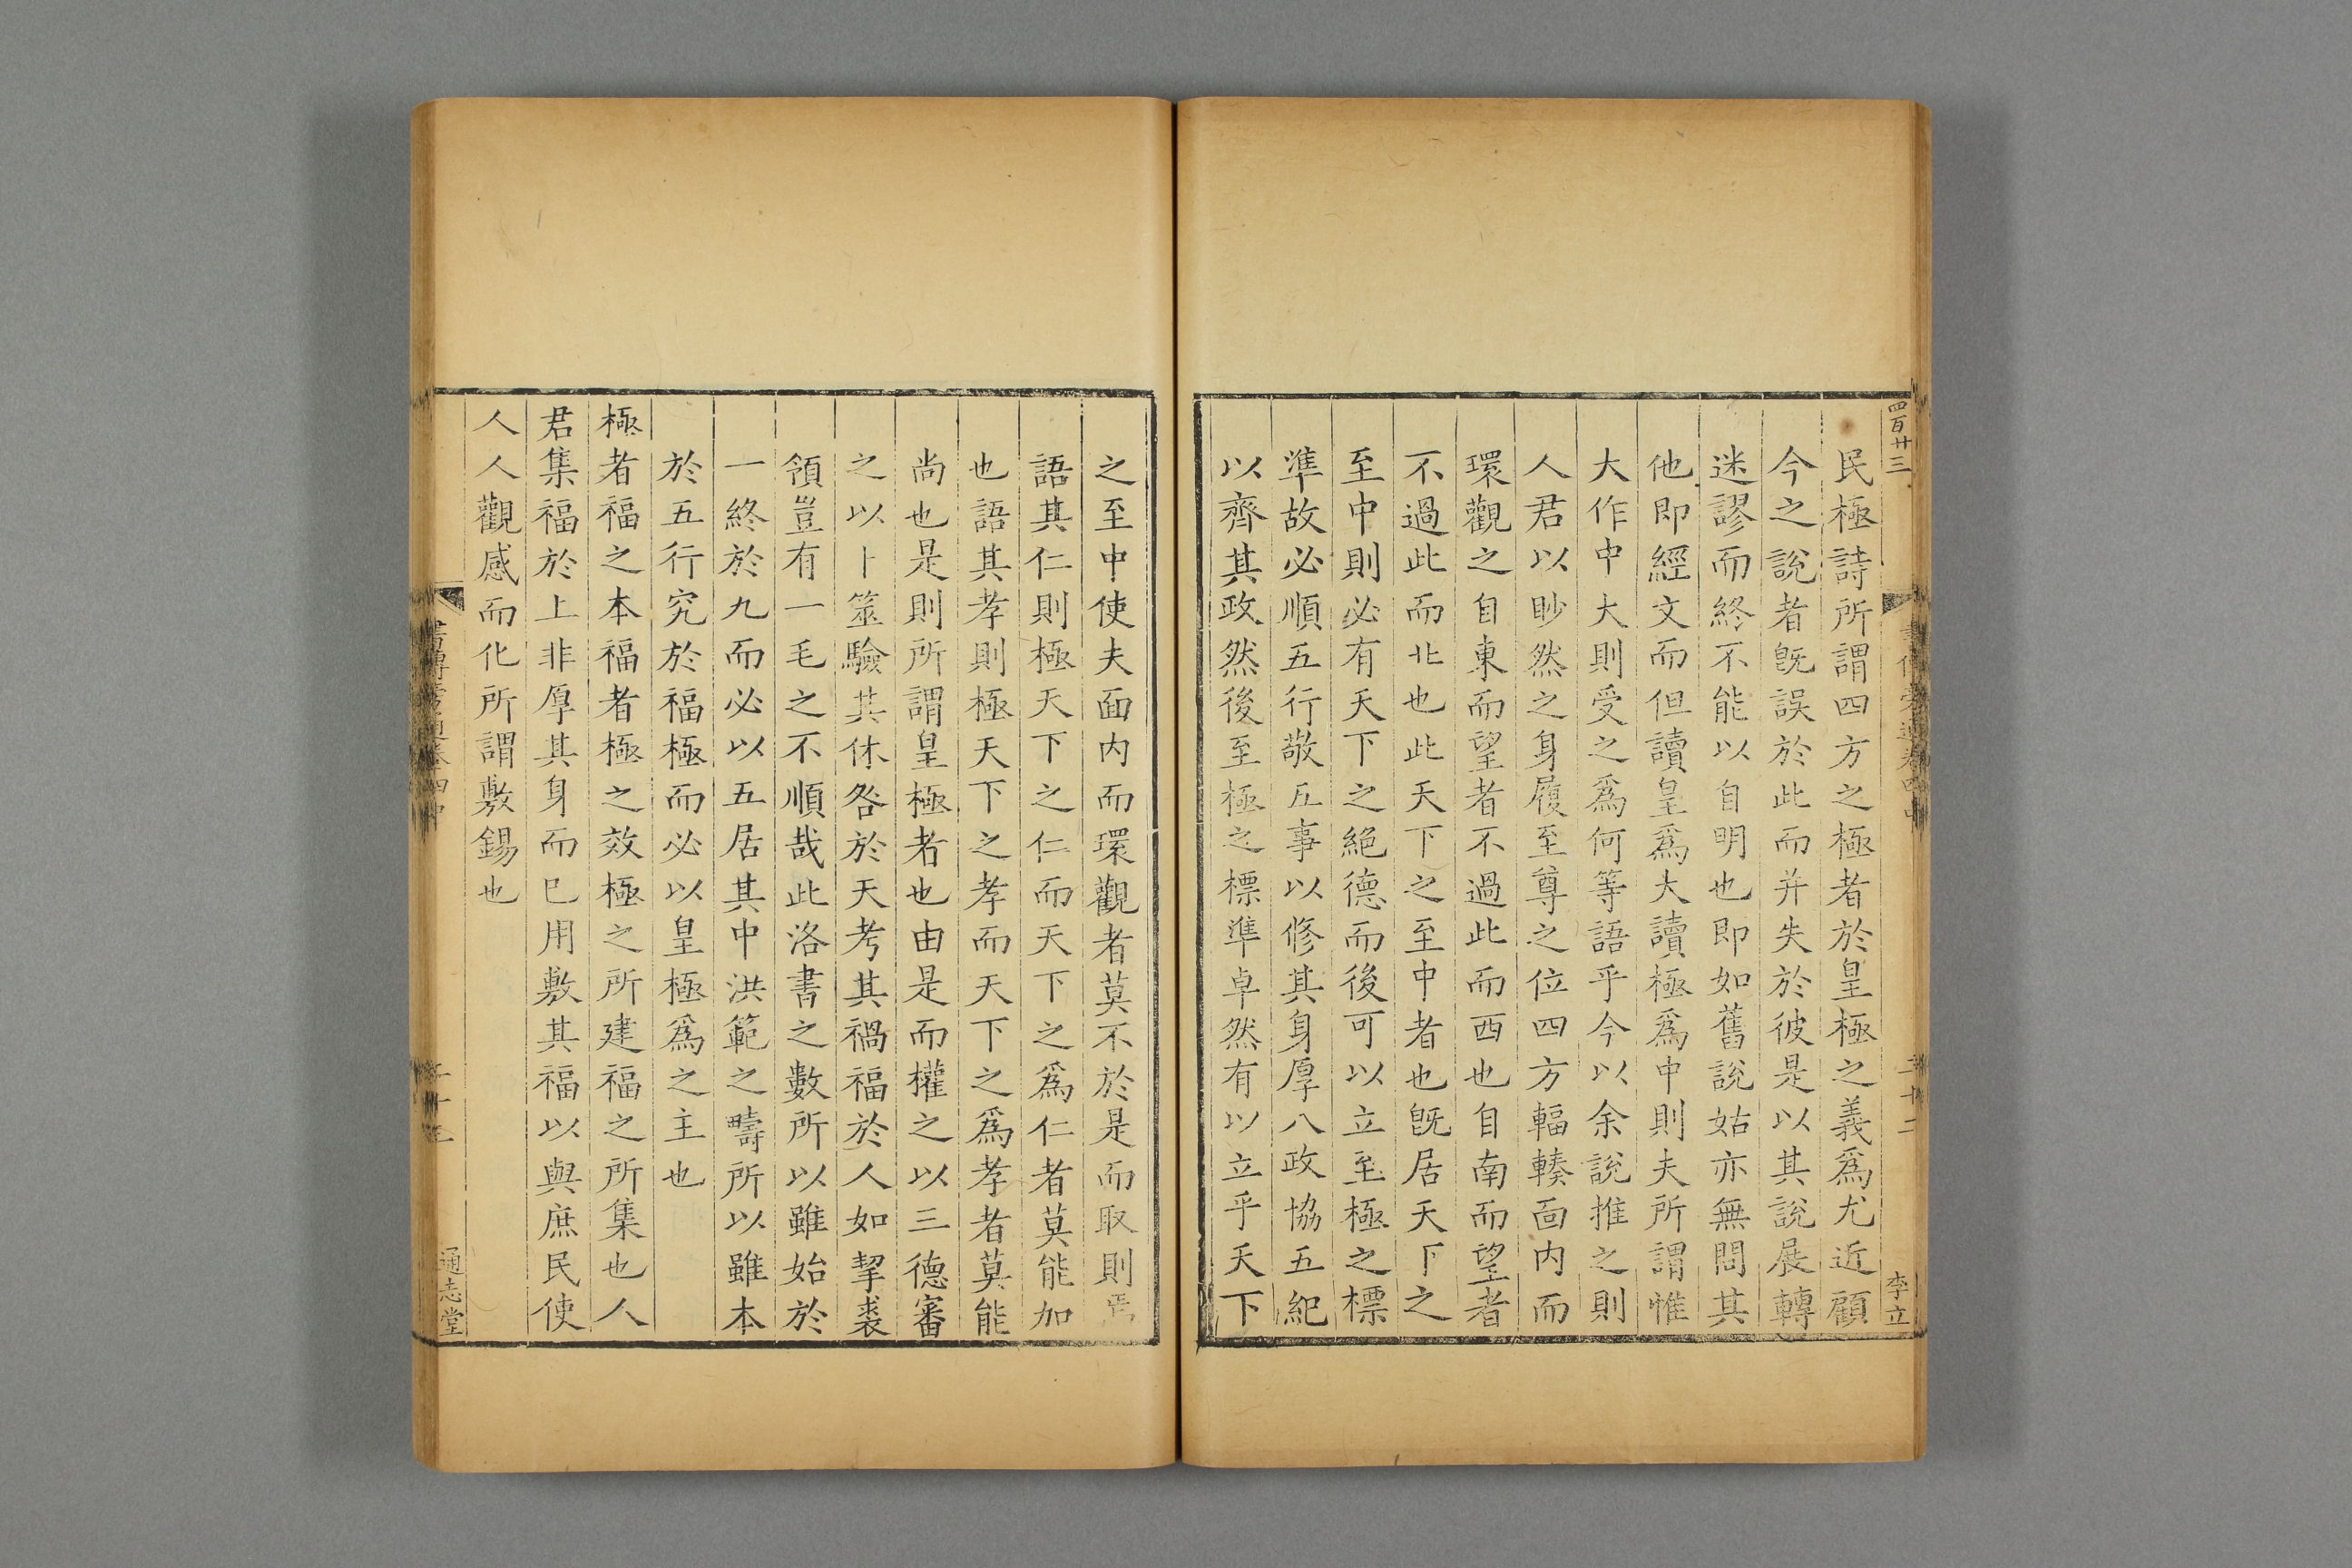 四百廿三
李立
民極詩所謂四方之極者於皇極之義爲尤近顧
今之說者旣誤於此而并失於彼是以其說展轉
迷謬而終不能以自明也即如舊說姑亦無問其
他即經文而但讀皇爲大讀極爲中則夫所謂惟
大作中大則受之爲何等語乎今以余說推之則
人君以眇然之身履至尊之位四方輻輳面内而
環觀之自東而望者不過此而西也自南而望者
不過此而北也此天下之至中者也旣居天下之
至中則必有天下之絕德而後可以立至極之標
準故必順五行敬五事以修其身厚八政協五紀
以齊其政然後至極之標準卓然有以立乎天下
之至中使夫面内而環觀者莫不於是而取則焉
語其仁則極天下之仁而天下之爲仁者莫能加
也語其孝則極天下之孝而天下之爲孝者莫能
尚也是則所謂皇極者也由是而權之以三德審
之以卜筮驗其休咎於天考其禍福於人如挈裘
領豈有一毛之不順哉此洛書之數所以雖始於
一終於九而必以五居其中洪範之疇所以雖本
於五行究於福極而必以皇極爲之主也
極者福之本福者極之效極之所建福之所集也人
君集福於上非厚其身而已用敷其福以與庶民使
人人觀感而化所謂敷錫也
通志堂